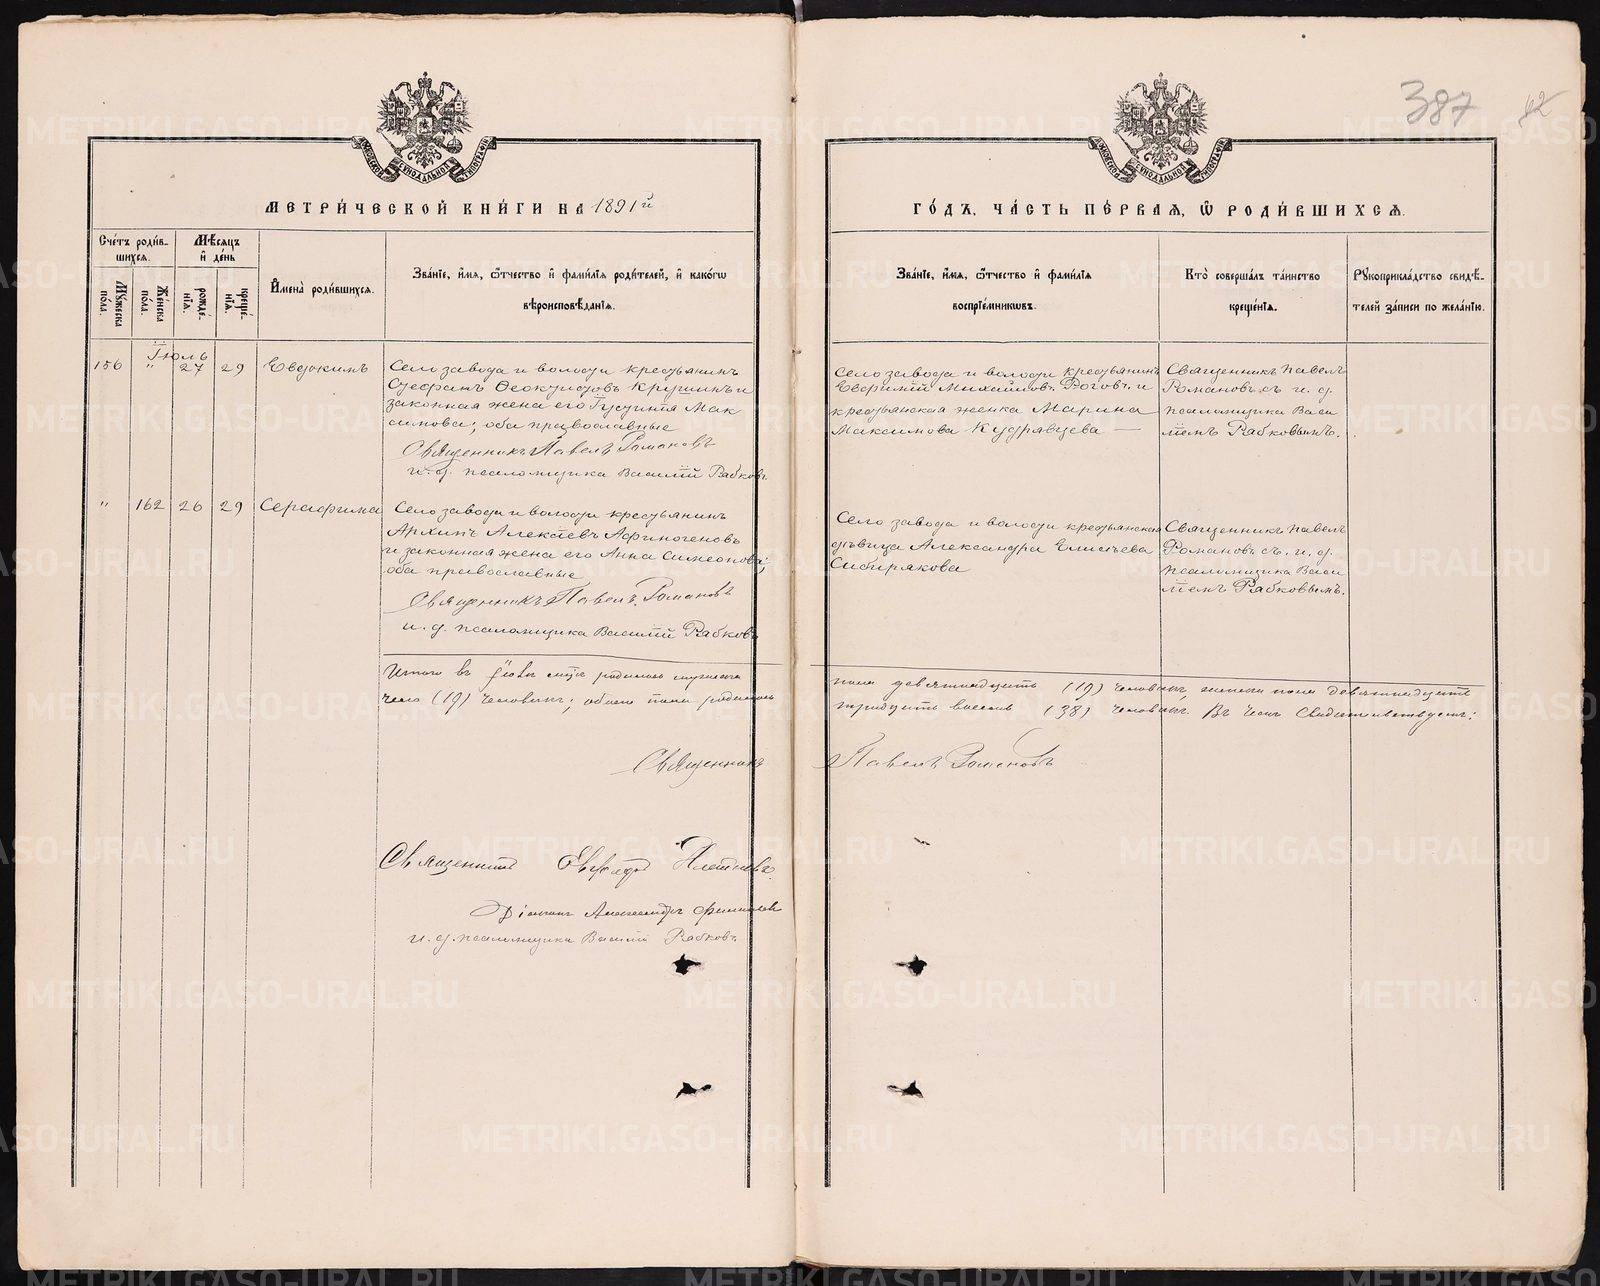 387
42
МЕТРИ́ЧЕСКОЙ КНИ́ГИ НА 1891й
ГО́ДЪ, ЧА́СТЬ ПЕ́РВАѦ, Ѡ҆ РОДИ́ВШИХСѦ.
Сче́тъ роди́в-
шихсѧ.
Мѣ́сѧцъ
и҆ де́нь
Мꙋ́жеска
по́ла.
Же́нска
по́ла.
рожде́-
нїѧ.
креще́-
нїѧ.
И҆мена̀ роди́вшихсѧ.
Зва́нїе, и҆́мѧ, ѻ҆́тчество и҆ фами́лїѧ роди́телей, и҆ како́гѡ
вѣроисповѣ́данїѧ.
Зва́нїе, и҆́мѧ, ѻ҆́тчество и҆ фами́лїѧ
воспрїе́мникѡвъ.
Кто̀ соверша́лъ та́инство
креще́нїѧ.
Рꙋкоприкла́дство свидѣ́-
телей за́писи по жела́нїю.
Іюль
156 " 27 29 Евдокимъ
Село завода и волости крестьянинъ
Стефанъ Феоктистовъ Кришинъ и
законная жена его Іустинія Мак
симова; оба православные
Священникъ Павелъ Романовъ
и. д. псаломщика Василій Рябковъ
Село завода и волости крестьянинъ
Евфимій Михайловъ Роговъ и
крестьянская женка Марина
Максимова Кудрявцева —
Священникъ Павелъ
Романовъ съ и. д.
псаломщика Васи
ліемъ Рябковымъ.
" 162 26 29 Серафима
Село завода и волости крестьянинъ
Архипъ Алексѣевъ Афиногеновъ
и законная жена его Анна Симеонова;
оба православные
Священникъ Павелъ Романовъ
и. д. псаломщика Василій Рябковъ
Село завода и волости крестьянская
дѣвица Александра Елисѣева
Сибирякова
Священникъ Павелъ
Романовъ съ. и. д.
псаломщика Васи
ліемъ Рябковымъ.
Итого въ Іюлѣ мцѣ родилось мужеска
пола девятнадцать (19) человѣкъ, женска пола девятнадцать
(19) человѣкъ; обоего пола родилось
тридцать восемь (38) человѣкъ. Въ чемъ свидѣтельствуемъ:
Священникъ Павелъ Романовъ
Священникъ
Діаконъ Александръ
и. д. псаломщика Василій Рябковъ
METRIKI.GASO-URAL.RU